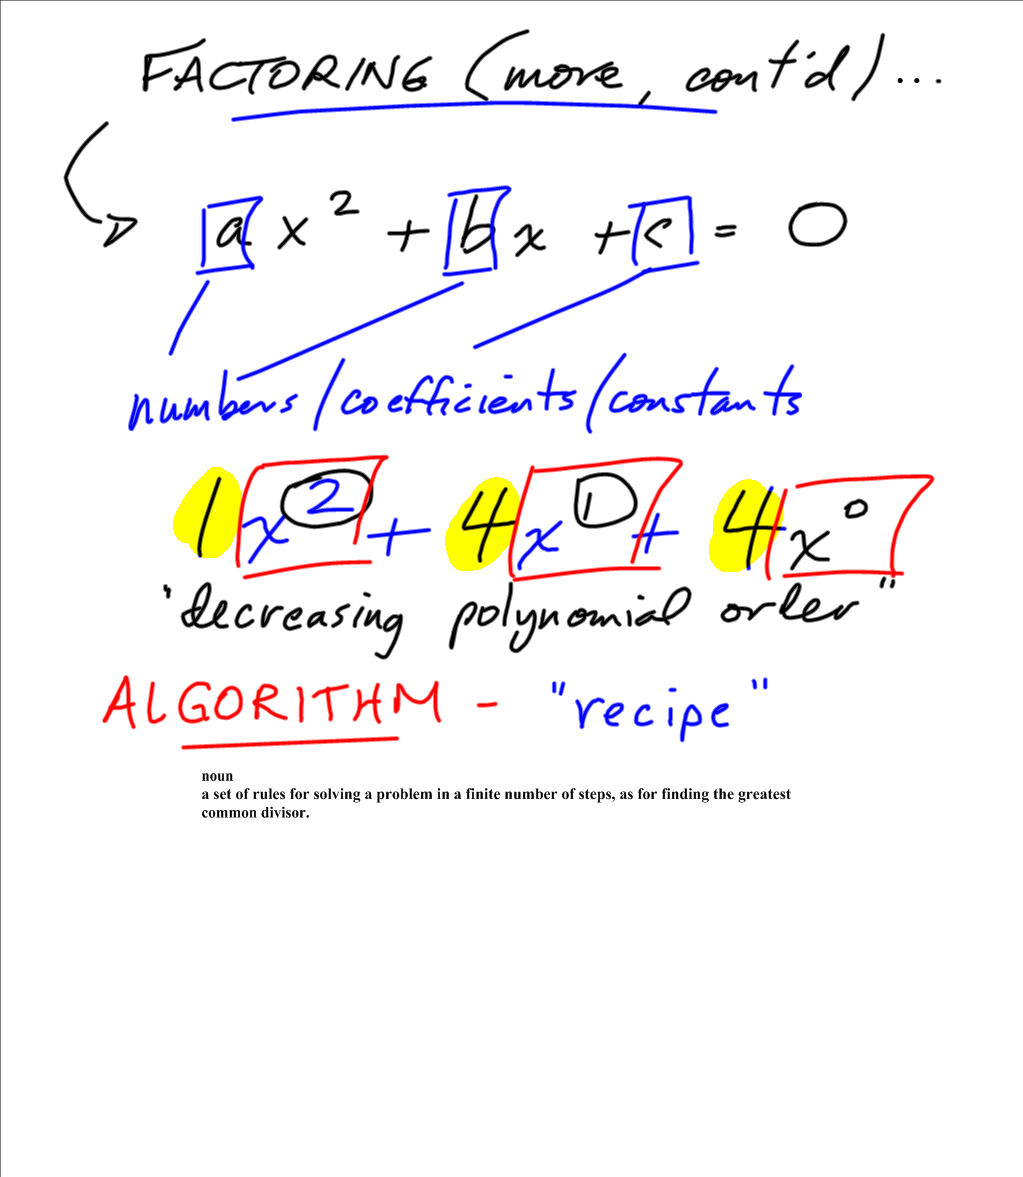 FACTORING (more, cont'd) ...
a x² + b x + c = 0
numbers / coefficients / constants
1 x² + 4 x¹ + 4 x⁰
"decreasing polynomial order"
ALGORITHM - "recipe"
noun
a set of rules for solving a problem in a finite number of steps, as for finding the greatest
common divisor.